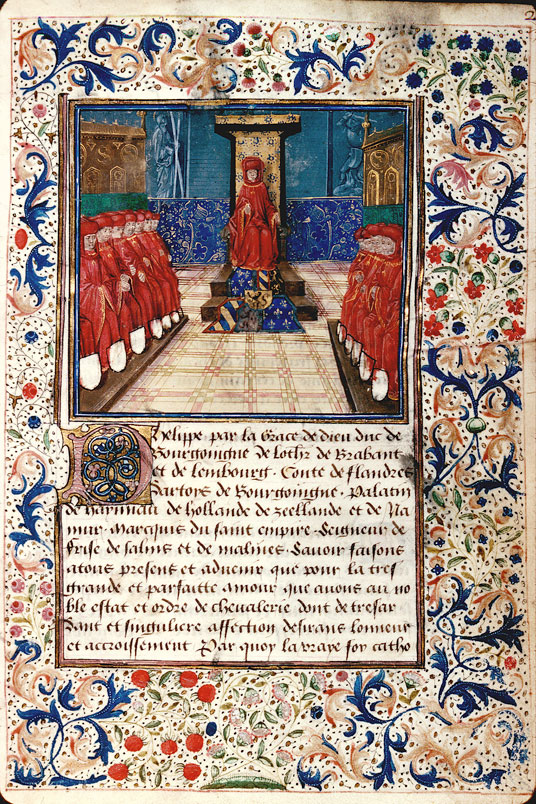 2
Phelippe par la grace de dieu duc de
Bourgoingne de lothr de Brabant
et de lembourg. Conte de flandres
Dartoys de Bourgoingne. Palatin
de haynnau de hollande de zeellande et de Na
mur. Marcquis du saint empire. Seigneur de
frise de salins et de malines. Savoir faisons
atous presens et advenir que pour la tres
grande et parfaitte amour que avons au no
ble estat et ordre de chevalerie dont de tresar
dant et singuliere affection desirans lonneur
et accroissement Par quoy la vraye foy catho